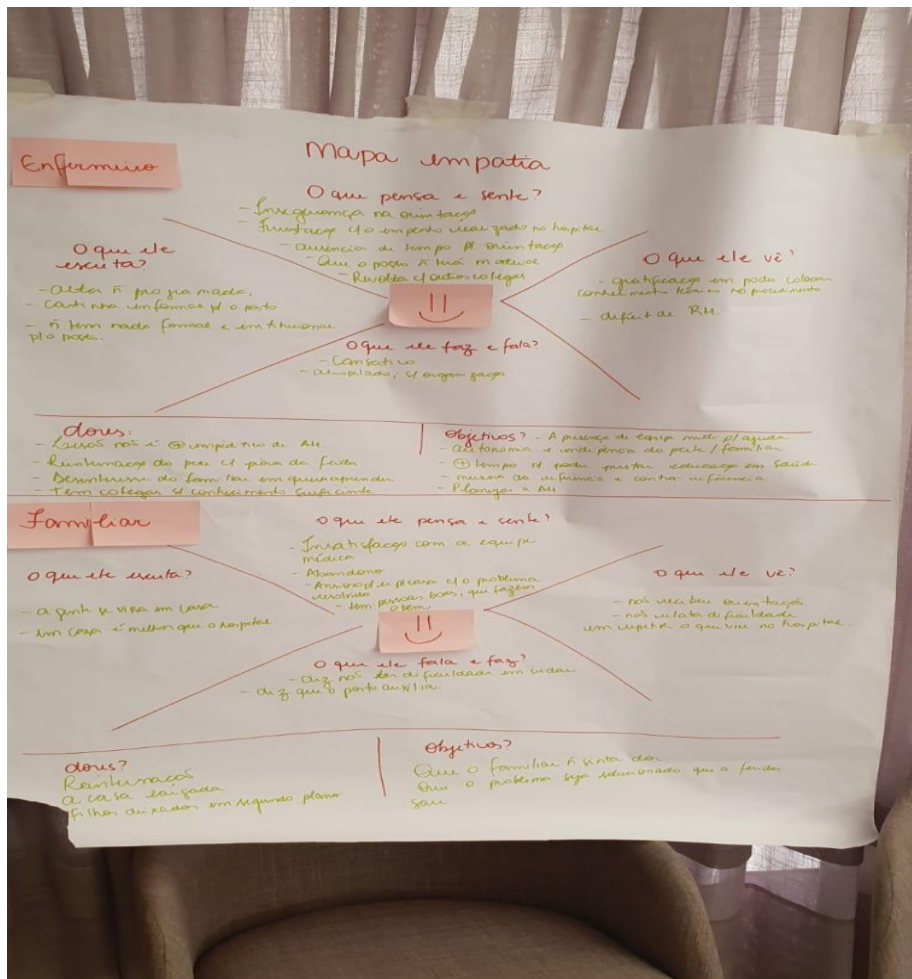 Enfermeiro
Mapa empatia
O que pensa e sente?
- Insegurança na orientação
- Frustação c/ o empenho realizado no hospital
- ausência de tempo p/ orientação
- Que o poder ñ terá material
- Revolta c/ outros colegas
O que ele
escuta?
- alta ñ programada,
- cartinha informal p/ o posto
- ñ tem nada formal e institucional
p/ o posto.
O que ele vê?
- gratificação em poder colocar
conhecimento técnico no procedimento
- deficit de RH.
O que ele faz e fala?
- Cansativo
- atropelado, s/ organização
dores:
- Lesão não é
de AH
- Reinternação do c/ piora da ferida
- Desinteresse do familiar em querer aprender
- Tem colegas s/ conhecimento suficiente
Objetivos? - A presença de equipe multi p/ ajuda
- autonomia e do / familiar
- ⊕ tempo p/ poder prestar educação em saúde
- da referência e contra referência
- Planejar a AH
Familiar
O que ele pensa e sente?
- Insatisfação com a equipe
médica
- Abandono
- c/ o problema
resolvido
- tem pessoas boas, que fazem
o bem.
O que ele escuta?
- a gente se vira em casa
- em casa é melhor que o hospital
O que ele vê?
- não recebeu orientação
- não relata dificuldade
em repetir o que viu no hospital
O que ele fala e faz?
- diz não ter dificuldade em cuidar
- diz que o posto auxilia.
dores?
Reinternação
a casa
filhos deixados em segundo plano
Objetivos?
Que o familiar ñ sinta dor
Que o problema seja solucionado que a ferida